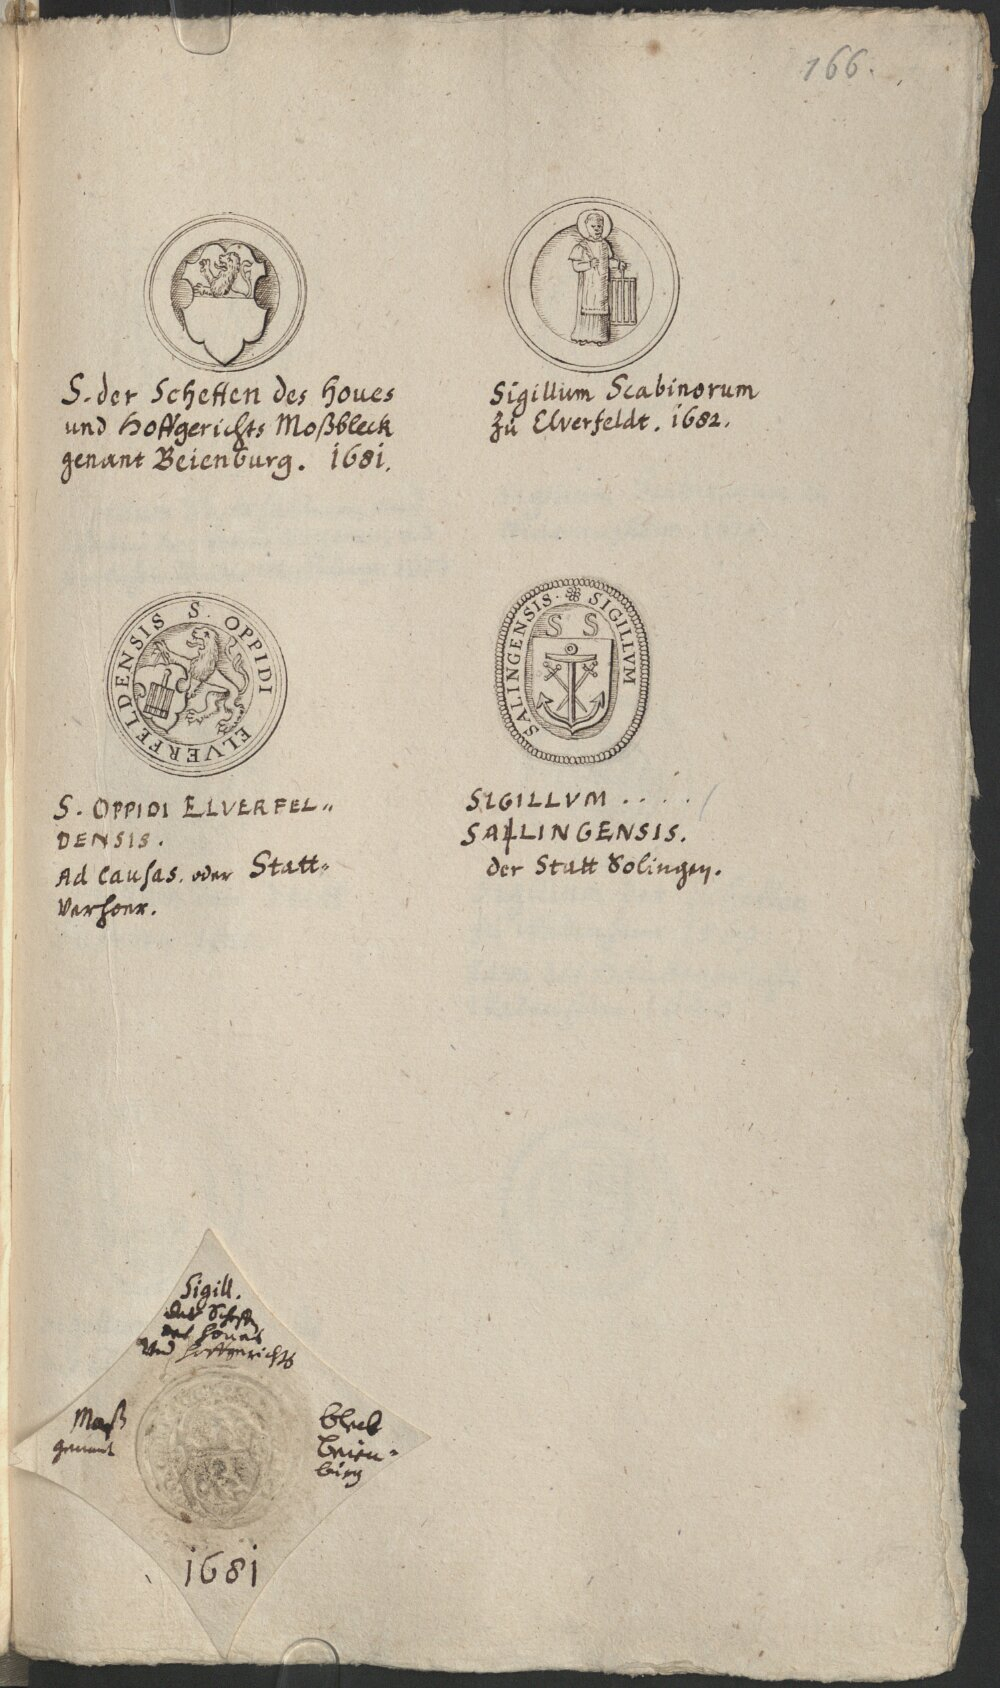 166.
S. der Scheffen des Hoves
und Hoffgerichts Moßbleck
genant Beienburg. 1681.
Sigillum Scabinorum
zu Elverfeldt. 1682.
S. OPPIDI ELVERFELDENSIS
SIGILLVM SALINGENSIS.
S S
S. OPPIDI ELVERFEL„
DENSIS.
Ad Causas. oder Statt-
Verhoer.
SIGILLVM . . . .
SALLINGENSIS.
der Statt Solingen.
Sigill.
der Scheffen
des Hoves
Und Hoffgerichts
Moß
genant
bleck
beien-
burg
1681